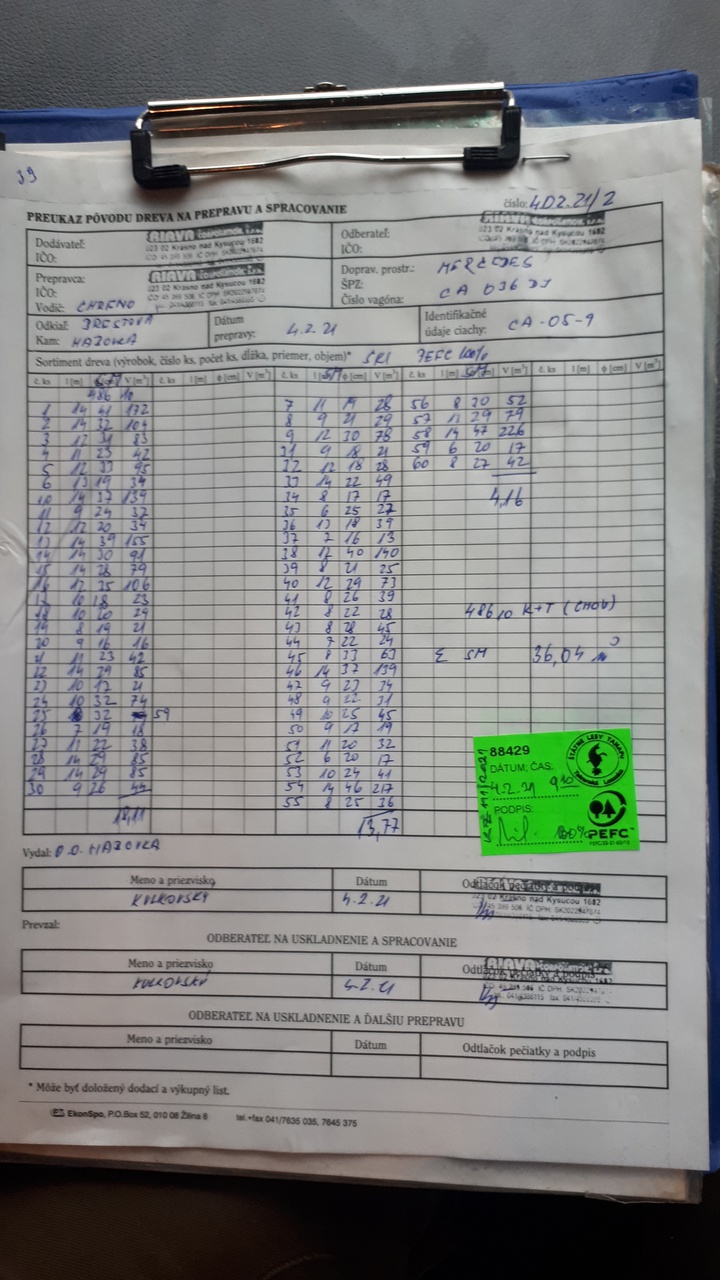 39
číslo: 402.21/2
PREUKAZ PÔVODU DREVA NA PREPRAVU A SPRACOVANIE
Dodávateľ:
IČO:
RIAVA
023 02 Krásno nad Kysucou 1682
Odberateľ:
IČO:
023 02 Krásno nad Kysucou 1682
Prepravca:
IČO:
Vodič:
RIAVA
023 02 Krásno nad Kysucou 1682
Doprav. prostr.: MERCEDES
ŠPZ: CA 036
Číslo vagóna:
Odkiaľ:
Kam:
Dátum
prepravy: 4.2.21
Identifikačné
údaje ciachy: CA-05-9
Sortiment dreva (výrobok, číslo ks, počet ks, dĺžka, priemer, objem)* PEFC 100%
č. ks l [m] V [m³] l [m] φ [cm] V [m³] č. ks l [m] φ [cm] V [m³] č. ks l [m] V [m³] č. ks l [m] φ [cm] V [m³]
486 10
1 14 41 172 7 11 19 28 56 8 30 52
2 14 32 104 8 9 21 29 57 11 29 79
3 12 31 83 9 12 30 78 58 14 47 226
4 11 23 42 31 9 18 21 59 6 20 17
5 12 33 95 32 12 18 28 60 8 27 42
6 13 19 34 33 14 22 49
10 14 37 139 34 8 17 17 4,16
11 9 24 37 35 6 25 27
12 12 20 34 36 13 18 39
13 14 39 155 37 7 16 13
14 14 30 91 38 12 40 140
15 14 28 79 39 8 21 25
16 12 35 106 40 12 29 73
17 10 18 23 41 8 26 39
18 10 20 29 42 8 22 28 486 10 K+T (CHOV)
19 8 19 21 43 8 28 45
20 9 16 16 44 7 22 24
21 11 23 42 45 8 33 63 Σ SM 36,04
22 14 29 85 46 14 37 139
23 10 17 21 47 9 23 34
24 10 32 74 48 9 22 31
25 32 59 49 10 25 45
26 7 19 18 50 9 17 19
27 11 22 38 51 11 20 32
28 14 29 85 52 6 20 17
29 14 29 85 53 10 24 41
30 9 26 44 54 14 46 217
55 8 25 36
18,11 13,77
88429
DÁTUM; ČAS:
4.2.21 9
PODPIS:
100%
ŠTÁTNE LESY TANAPU
Tatranská Lomnica
PEFC
Vydal:
Meno a priezvisko Dátum Odtlačok pečiatky a podpis
KULKOVSKÝ 4.2.21
023 02 Krásno nad Kysucou 1682
Prevzal:
ODBERATEĽ NA USKLADNENIE A SPRACOVANIE
Meno a priezvisko Dátum Odtlačok pečiatky a podpis
KULKOVSKÝ 4.2.21
RIAVA
023 02 Krásno nad Kysucou 1682
ODBERATEĽ NA USKLADNENIE A ĎALŠIU PREPRAVU
Meno a priezvisko Dátum Odtlačok pečiatky a podpis
* Môže byť doložený dodací a výkupný list.
EkonSpo, P.O.Box 52, 010 08 Žilina 8 tel.+fax 041/7635 035, 7645 375